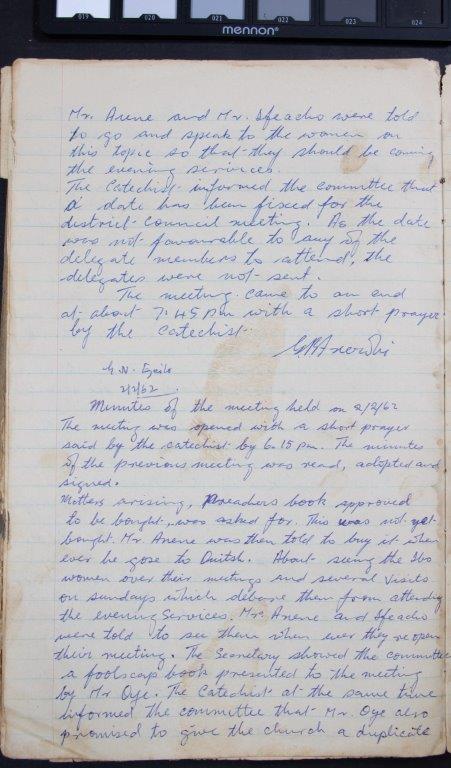 019 020 021 022 023 024
mennon
Mr. Anene and Mr. Ifeacho were told
to go and speak to the women on
this topic so that they should be coming
the evening services.
The Catechist informed the committee that
a date has been fixed for the
district council meeting. As the date
was not favourable to any of the
delegate members to attend, the
delegates were not sent.
The meeting came to an end
at about 7.45 pm with a short prayer
by the Catechist.
G. N.
2/2/62
Minutes of the meeting held on 2/2/62
The meeting was opened with a short prayer
said by the catechist by 6.15 pm. The minutes
of the previous meeting was read, adopted and
signed.
Matters arising, Preachers book approved
to be bought, was asked for. This was not yet
bought. Mr. Anene was then told to buy it when
ever he gose to Onitsh. About seeing the Ibo
women over their meetings and several visits
on sundays which debare them from attending
the evening Services. Mr. Anene and Ifeacho
were told to see them when ever they re open
their meeting. The Secretary showed the committee
a foolscap book presented to the meeting
by Mr Oye. The Catechist at the same time
informed the committee that Mr. Oye also
promised to give the church a duplicate